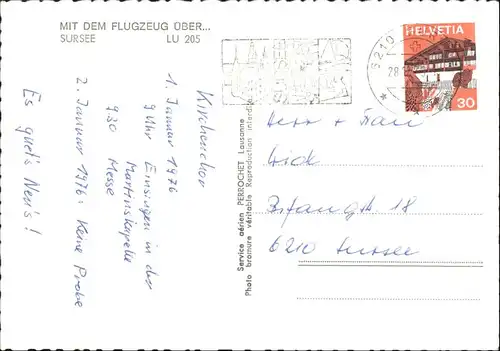 MIT DEM FLUGZEUG ÜBER...
SURSEE LU 205
Kirchenchor
1. Januar 1976
9 Uhr Einsingen in der
Martinskapelle
9.30 Messe
2. Januar 1976: Keine Probe
Es guet's Neu's!
Photo Service aérien PERROCHET Lausanne
Photo bromure véritable Reproduction interdite
HELVETIA
30
6210
28.
Herr + Frau
18
6210 Sursee